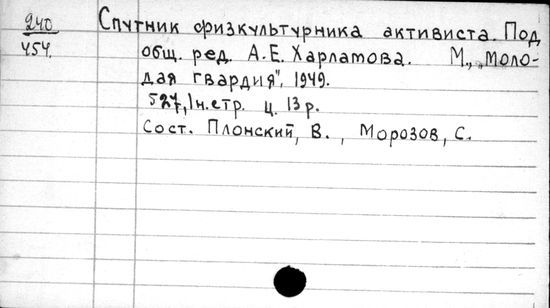 240
454.
Спутник физкультурника активиста. Под
общ. ред. А.Е. Харламова. М., „Моло-
дая гвардия", 1949.
527, 1 н. стр. ц. 13 р.
Сост. Плонский, В., Морозов, С.